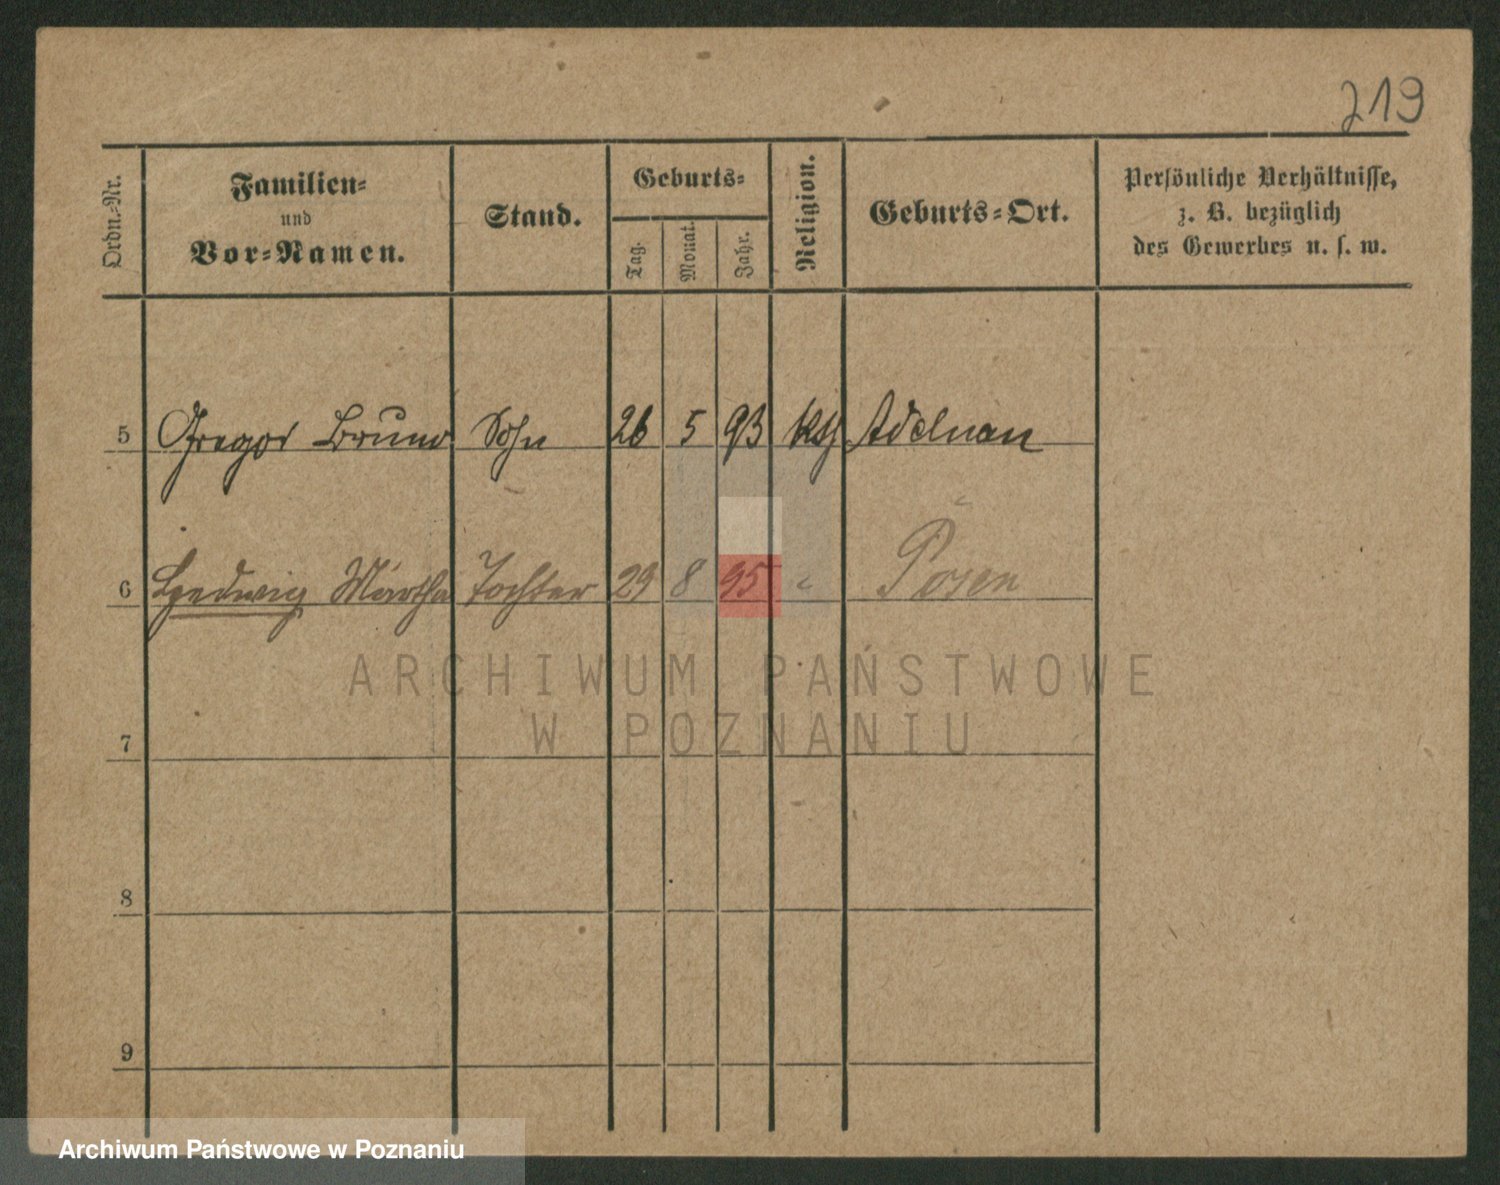 219
Ordn.-Nr.
Familien-
und
Vor-Namen.
Stand.
Geburts-
Tag.
Monat.
Jahr.
Religion.
Geburts-Ort.
Persönliche Verhältnisse,
z. B. bezüglich
des Gewerbes u. s. w.
5 Gregor Bruno Sohn 26 5 93 kth Adelnau
6 Hedwig Martha Tochter 29 8 95 " Posen
ARCHIWUM PAŃSTWOWE
W POZNANIU
7
8
9
Archiwum Państwowe w Poznaniu